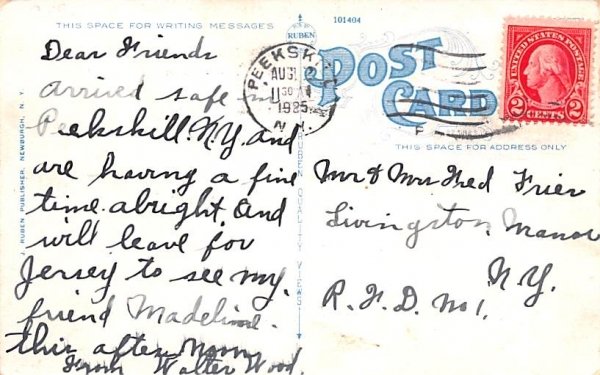 THIS SPACE FOR WRITING MESSAGES
RUBEN
101404
POST
CARD
THIS SPACE FOR ADDRESS ONLY
UNITED STATES POSTAGE
2 CENTS 2
PEEKSKI
AUG
11 30 AM
1925
N.Y.
J. RUBEN PUBLISHER, NEWBURGH, N. Y.
RUBEN QUALITY VIEWS
Dear Friends
Arrived safe in
Peekskill. N.Y. and
are having a fine
time. alright. And
will leave for
Jersey to see my.
friend Madeline.
this after Noon
From Walter Wood.
Mr & Mrs Fred Frier
Livingston Manor
N.Y.
R.F.D. No 1.